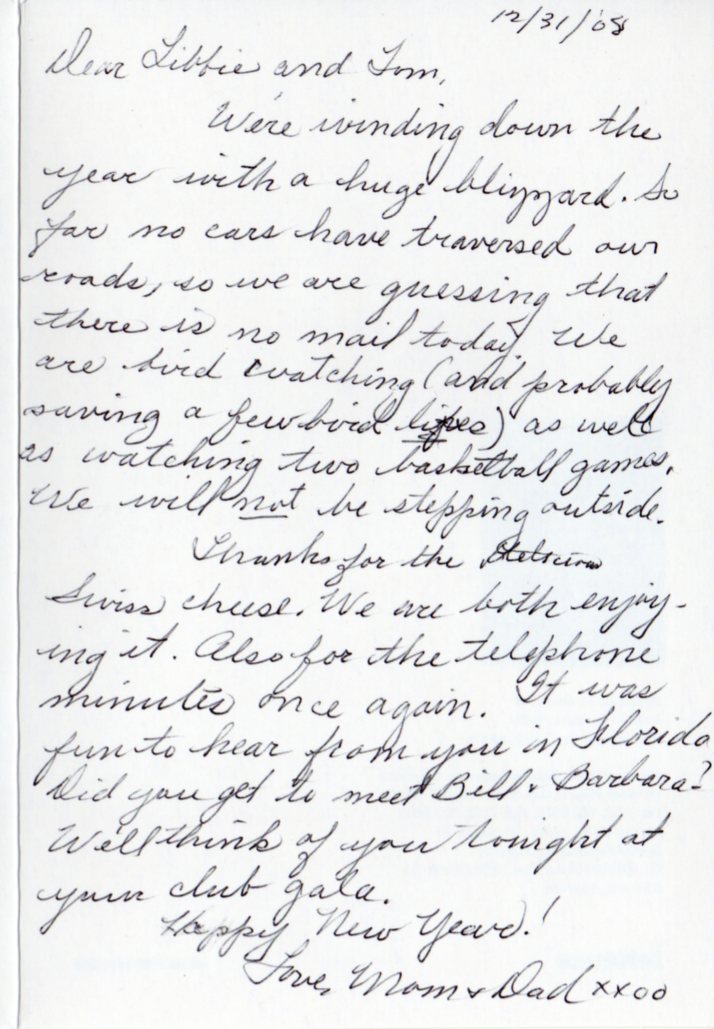 12/31/'08
Dear Libbie and Tom,
We're winding down the
year with a huge blizzard. So
far no cars have traversed our
roads, so we are guessing that
there is no mail today. We
are bird watching (and probably
saving a few bird lives) as well
as watching two basketball games.
We will not be stepping outside.
Thanks for the delicious
Swiss cheese. We are both enjoy-
ing it. Also for the telephone
minutes once again. It was
fun to hear from you in Florida
Did you get to meet Bill & Barbara?
We'll think of you tonight at
your club gala.
Happy New Year!
Love, Mom & Dad xxoo